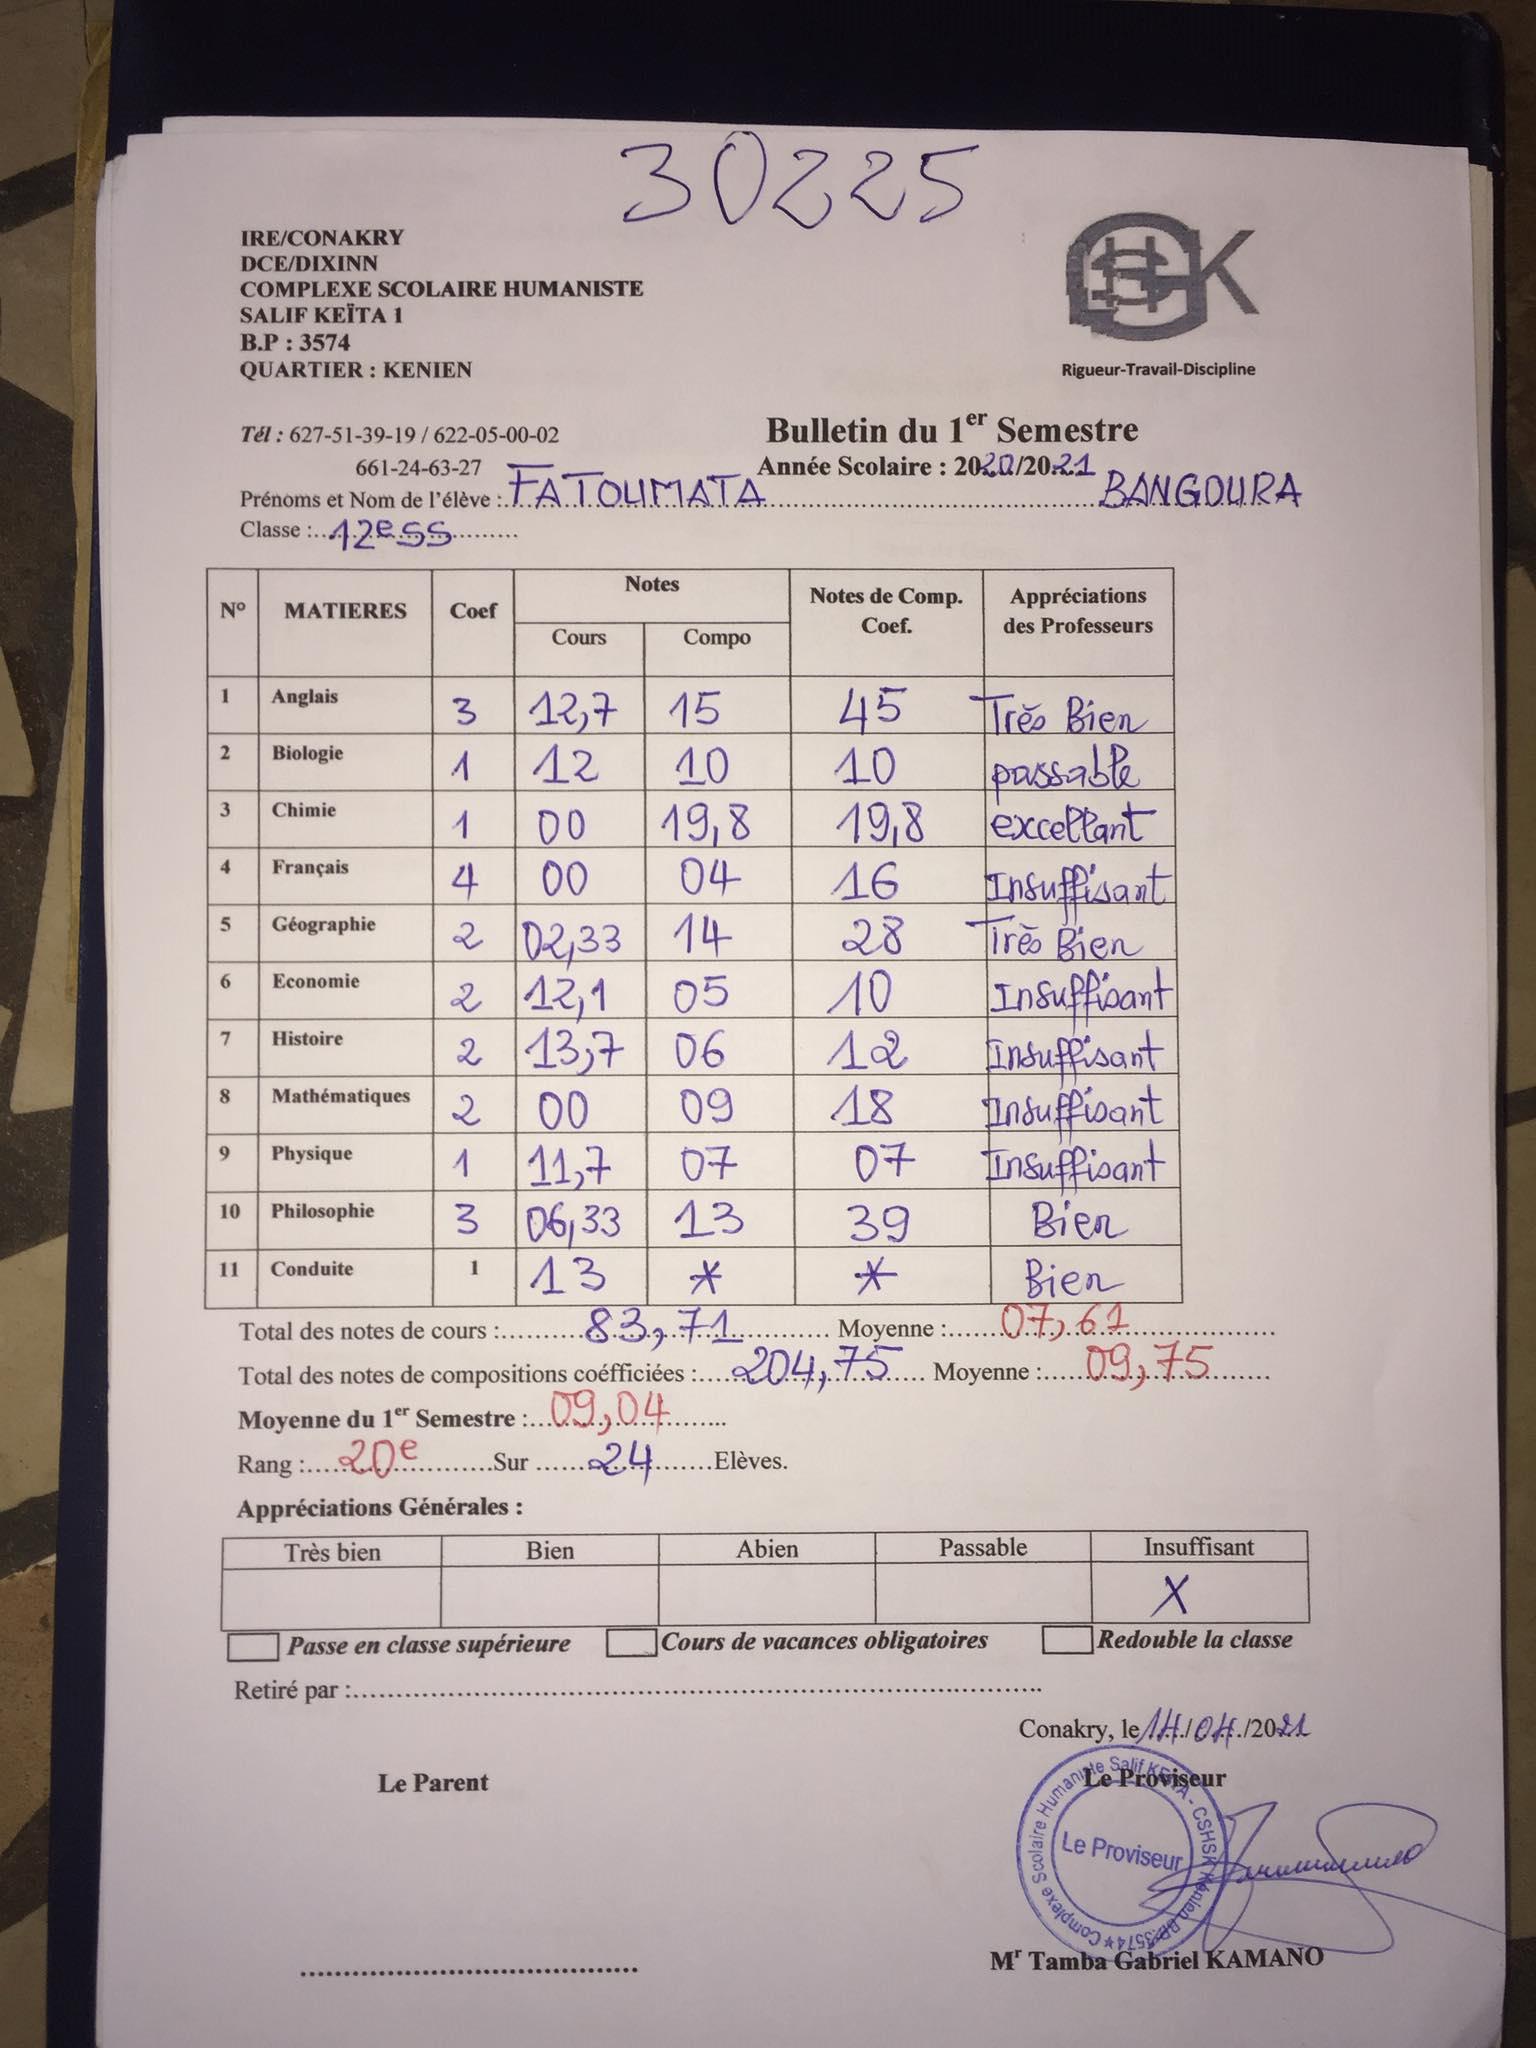 30225
IRE/CONAKRY
DCE/DIXINN
COMPLEXE SCOLAIRE HUMANISTE
SALIF KEÏTA 1
B.P : 3574
QUARTIER : KENIEN
Rigueur-Travail-Discipline
Tél : 627-51-39-19 / 622-05-00-02
661-24-63-27
Bulletin du 1er Semestre
Année Scolaire : 2020/2021
Prénoms et Nom de l'élève : FATOUMATA BANGOURA
Classe : 12eSS
N° MATIERES Coef Notes Notes de Comp. Coef. Appréciations des Professeurs
Cours Compo
1 Anglais 3 12,7 15 45 Très Bien
2 Biologie 1 12 10 10 passable
3 Chimie 1 00 19,8 19,8 excellant
4 Français 4 00 04 16 Insuffisant
5 Géographie 2 02,33 14 28 Très Bien
6 Economie 2 12,1 05 10 Insuffisant
7 Histoire 2 13,7 06 12 Insuffisant
8 Mathématiques 2 00 09 18 Insuffisant
9 Physique 1 11,7 07 07 Insuffisant
10 Philosophie 3 06,33 13 39 Bien
11 Conduite 1 13 * * Bien
Total des notes de cours : 83,71 Moyenne : 07,61
Total des notes de compositions coéfficiées : 204,75 Moyenne : 09,75
Moyenne du 1er Semestre : 09,04
Rang : 20e Sur 24 Elèves.
Appréciations Générales :
Très bien Bien Abien Passable Insuffisant
X
Passe en classe supérieure Cours de vacances obligatoires Redouble la classe
Retiré par :
Conakry, le 14/04/2021
Le Parent Le Proviseur
Complexe Scolaire Humaniste Salif KEITA - CSHSK Kénien BP:3574
Le Proviseur
Mr Tamba Gabriel KAMANO